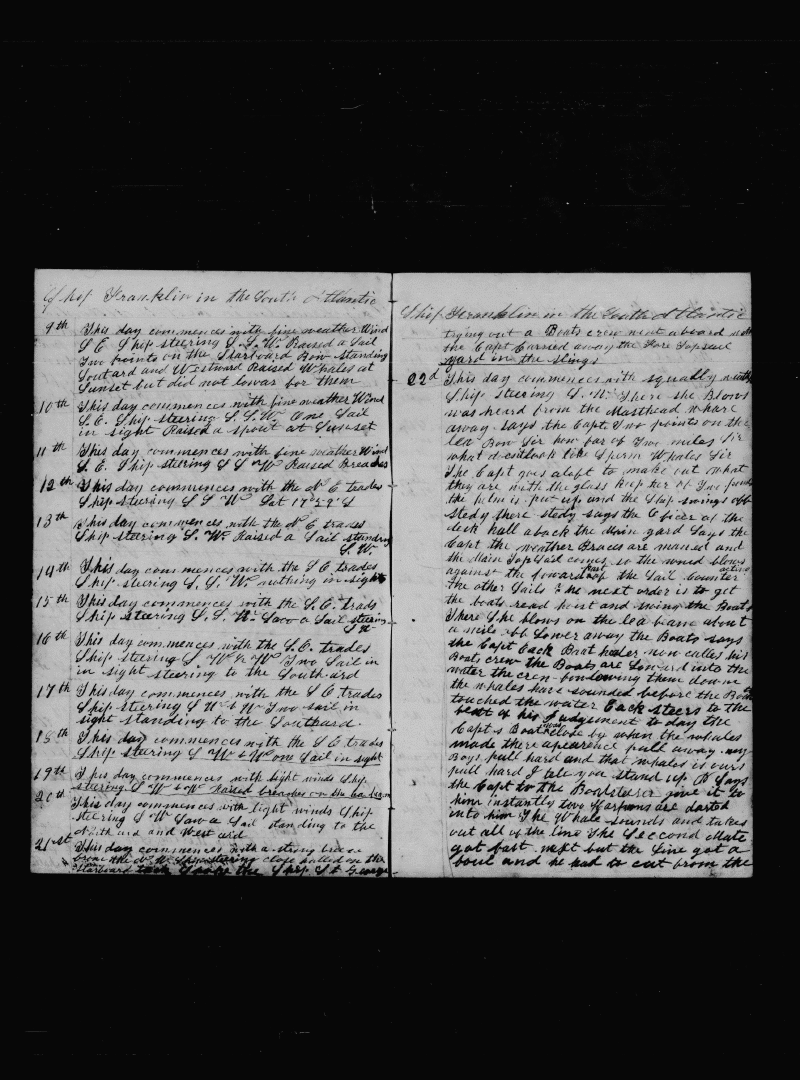 Ship Franklin in the South Atlantic
9th This day commences with fine weather Wind
S E. Ship steering S. S. W. Raised a Sail
Two points on the Starboard Bow Standing
Soutard and Westward Raised Whales at
Sunset but did not lowar for them
10th This day commences with fine weather Wind
S. E. Ship steering S. S. W. One Sail
in sight Raised a spout at Sunset
11th This day commences with fine weather Wind
S. E. Ship stering S S W Raised Breaches
12th This day commences with the S E trades
Ship steering S S W Lat 17°
13th This day commences with the S E trades
Ship steering S. W. Raised a Sail standing
S. W.
14th This day commences with the S E. trades
Ship steering S. S. W nothing in sight
15th This day commences with the S. E. trads
Ship steering S. S. W. Saw a Sail steering
16th This day commences with the S. E. trades
Ship steering S W & W Two Sail in
in sight steering to the South ard
17th This day commences with the S E trades
Ship steering S W & W Two sail in
sight standing to the Southard.
18th This day commences with the S E trades
Ship steering S W & W one Sail in sight
19th This day commences with light winds Ship
steering S W & W Raised breaches on the
20th This day commences with light winds Ship
steering S W Saw a Sail standing to the
North ard and West ard
21st This day commences with a strong breese
from the Ship steering close hauled on the
Starboard tack the Ship St George
Ship Franklin in the South Atlantic
trying out a Boats crew went aboard
the Capt Carried away the Fore Topsail
yard in the Slings
22d This day commences with squally weather
Ship steering S. W. There she Blows
was heard from the Masthead whare
away says the Capt. Two points on the
lea Bow Sir how far of Two miles Sir
what dos it look like Sperm Whales Sir
The Capt goes aloft to make out what
they are with the glass keep her of Two points
the helm is put up and the Ship swings off
stedy there stedy says the Oficer of the
deck hall aback the Main yard Says the
Capt the weather Braces are maned and
the Main Top Sail comes so the wind blows
against the foward part of the Sail Counter acting
the other Sails the next order is to get
the boats read hoist and swing the Boats
There She blows on the lea beame about
a mile off Lower away the Boats says
the Capt Each Boat heder now calles his
Boats crew the Boats are Lowerd into the
water the crew folowing them down
the whales have sounded before the Boats
touched the water Each steers to the
best of his Judgement to day the
Capt s Boat was close by when the whales
made there apearence pull away my
Boys pull hard and that whales is ours
pull hard I tele you stand up Says
the Capt to the Boatsterer give it to
him instantly two Harpons are darted
into him The Whale Sounds and takes
out all of the line The Second Mate
got fast next but the Line got a
foul and he had to cut from the